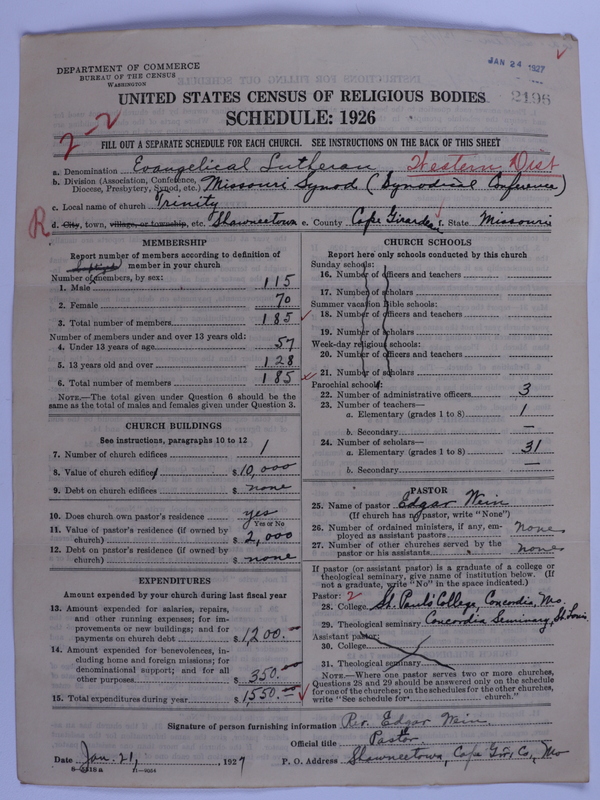 DEPARTMENT OF COMMERCE
BUREAU OF THE CENSUS
WASHINGTON
JAN 24 1927
2196
UNITED STATES CENSUS OF RELIGIOUS BODIES
SCHEDULE: 1926
2-2
FILL OUT A SEPARATE SCHEDULE FOR EACH CHURCH. SEE INSTRUCTIONS ON THE BACK OF THIS SHEET
a. Denomination Evangelical Lutheran Western Dist
b. Division (Association, Conference, Diocese, Presbytery, Synod, etc.) Missouri Synod (Synodical Conference)
c. Local name of church Trinity
R d. City, town, village, or township, etc. Shawneetown e. County Cape Girardeau f. State Missouri
MEMBERSHIP
Report number of members according to definition of
member in your church
Number of members, by sex:
1. Male 115
2. Female 70
3. Total number of members 185
Number of members under and over 13 years old:
4. Under 13 years of age 57
5. 13 years old and over 128
6. Total number of members 185
NOTE.—The total given under Question 6 should be
same as the total of males and females given under Question 3.
CHURCH BUILDINGS
See instructions, paragraphs 10 to 12
7. Number of church edifices 1
8. Value of church edifices $10,000
9. Debt on church edifices $ none
10. Does church own pastor's residence yes
Yes or No
11. Value of pastor's residence (if owned by
church) $ 2,000
12. Debt on pastor's residence (if owned by
church) $ none
EXPENDITURES
Amount expended by your church during last fiscal year
13. Amount expended for salaries, repairs,
and other running expenses; for im-
provements or new buildings; and for
payments on church debt $1,200.00
14. Amount expended for benevolences, in-
cluding home and foreign missions; for
denominational support; and for all
other purposes $ 350.00
15. Total expenditures during year $1,550.00
CHURCH SCHOOLS
Report here only schools conducted by this church
Sunday schools:
16. Number of officers and teachers
17. Number of scholars
Summer vacation Bible schools:
18. Number of officers and teachers
19. Number of scholars
Week-day religious schools:
20. Number of officers and teachers
21. Number of scholars
Parochial schools:
22. Number of administrative officers 3
23. Number of teachers—
a. Elementary (grades 1 to 8) 1
b. Secondary —
24. Number of scholars—
a. Elementary (grades 1 to 8) 31
b. Secondary —
PASTOR
25. Name of pastor Edgar Wein
(If church has no pastor, write "None")
26. Number of ordained ministers, if any, em-
ployed as assistant pastors none
27. Number of other churches served by the
pastor or his assistants none
If pastor (or assistant pastor) is a graduate of a college or
theological seminary, give name of institution below. (If
not a graduate, write "No" in the space indicated.)
Pastor: 2
28. College St. Paul's College, Concordia, Mo.
29. Theological seminary Concordia Seminary, St. Louis
Assistant pastor:
30. College
31. Theological seminary
NOTE.—Where one pastor serves two or more churches,
Questions 28 and 29 should be answered only on the schedule
for one of the churches; on the schedules for the other churches,
write "See schedule for church."
Signature of person furnishing information Rev. Edgar Wein
Official title Pastor
Date Jan. 21, 1927 P. O. Address Shawneetown, Cape Gir. Co., Mo